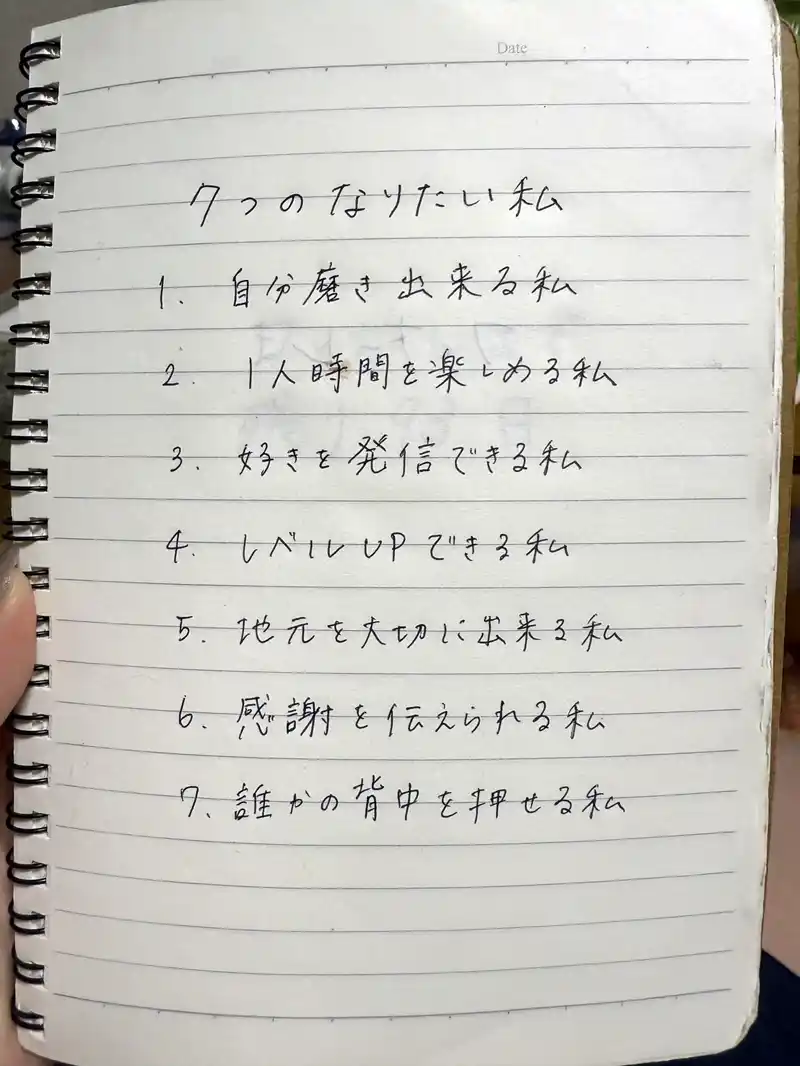 Date
7つのなりたい私
1. 自分磨き出来る私
2. 1人時間を楽しめる私
3. 好きを発信できる私
4. レベルUPできる私
5. 地元を大切に出来る私
6. 感謝を伝えられる私
7. 誰かの背中を押せる私